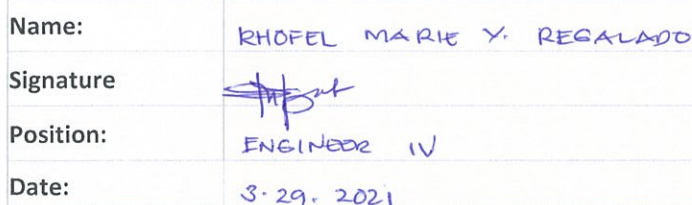 Name: RHOFEL MARIE Y. REGALADO
Signature
Position: ENGINEER IV
Date: 3.29.2021